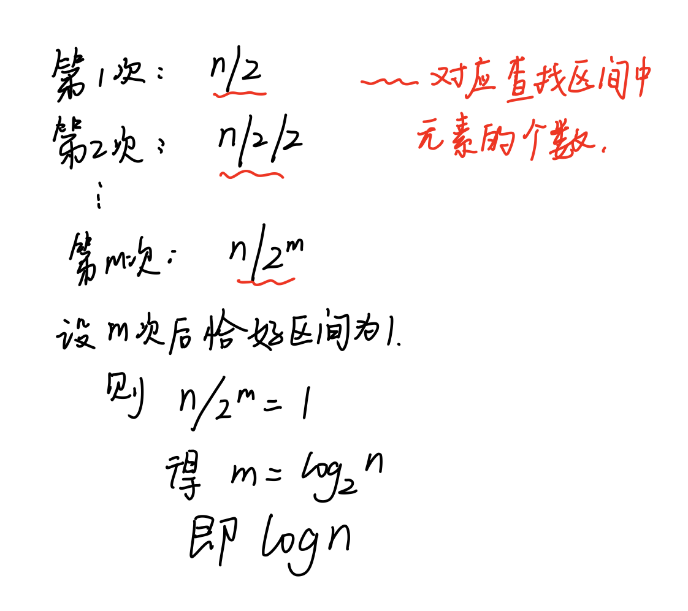 第1次: n/2
~~ 对应查找区间中
元素的个数.
第2次: n/2/2
⋮
第m次: n/2ᵐ
设m次后恰好区间为1.
则 n/2ᵐ = 1
得 m = log₂n
即 logn